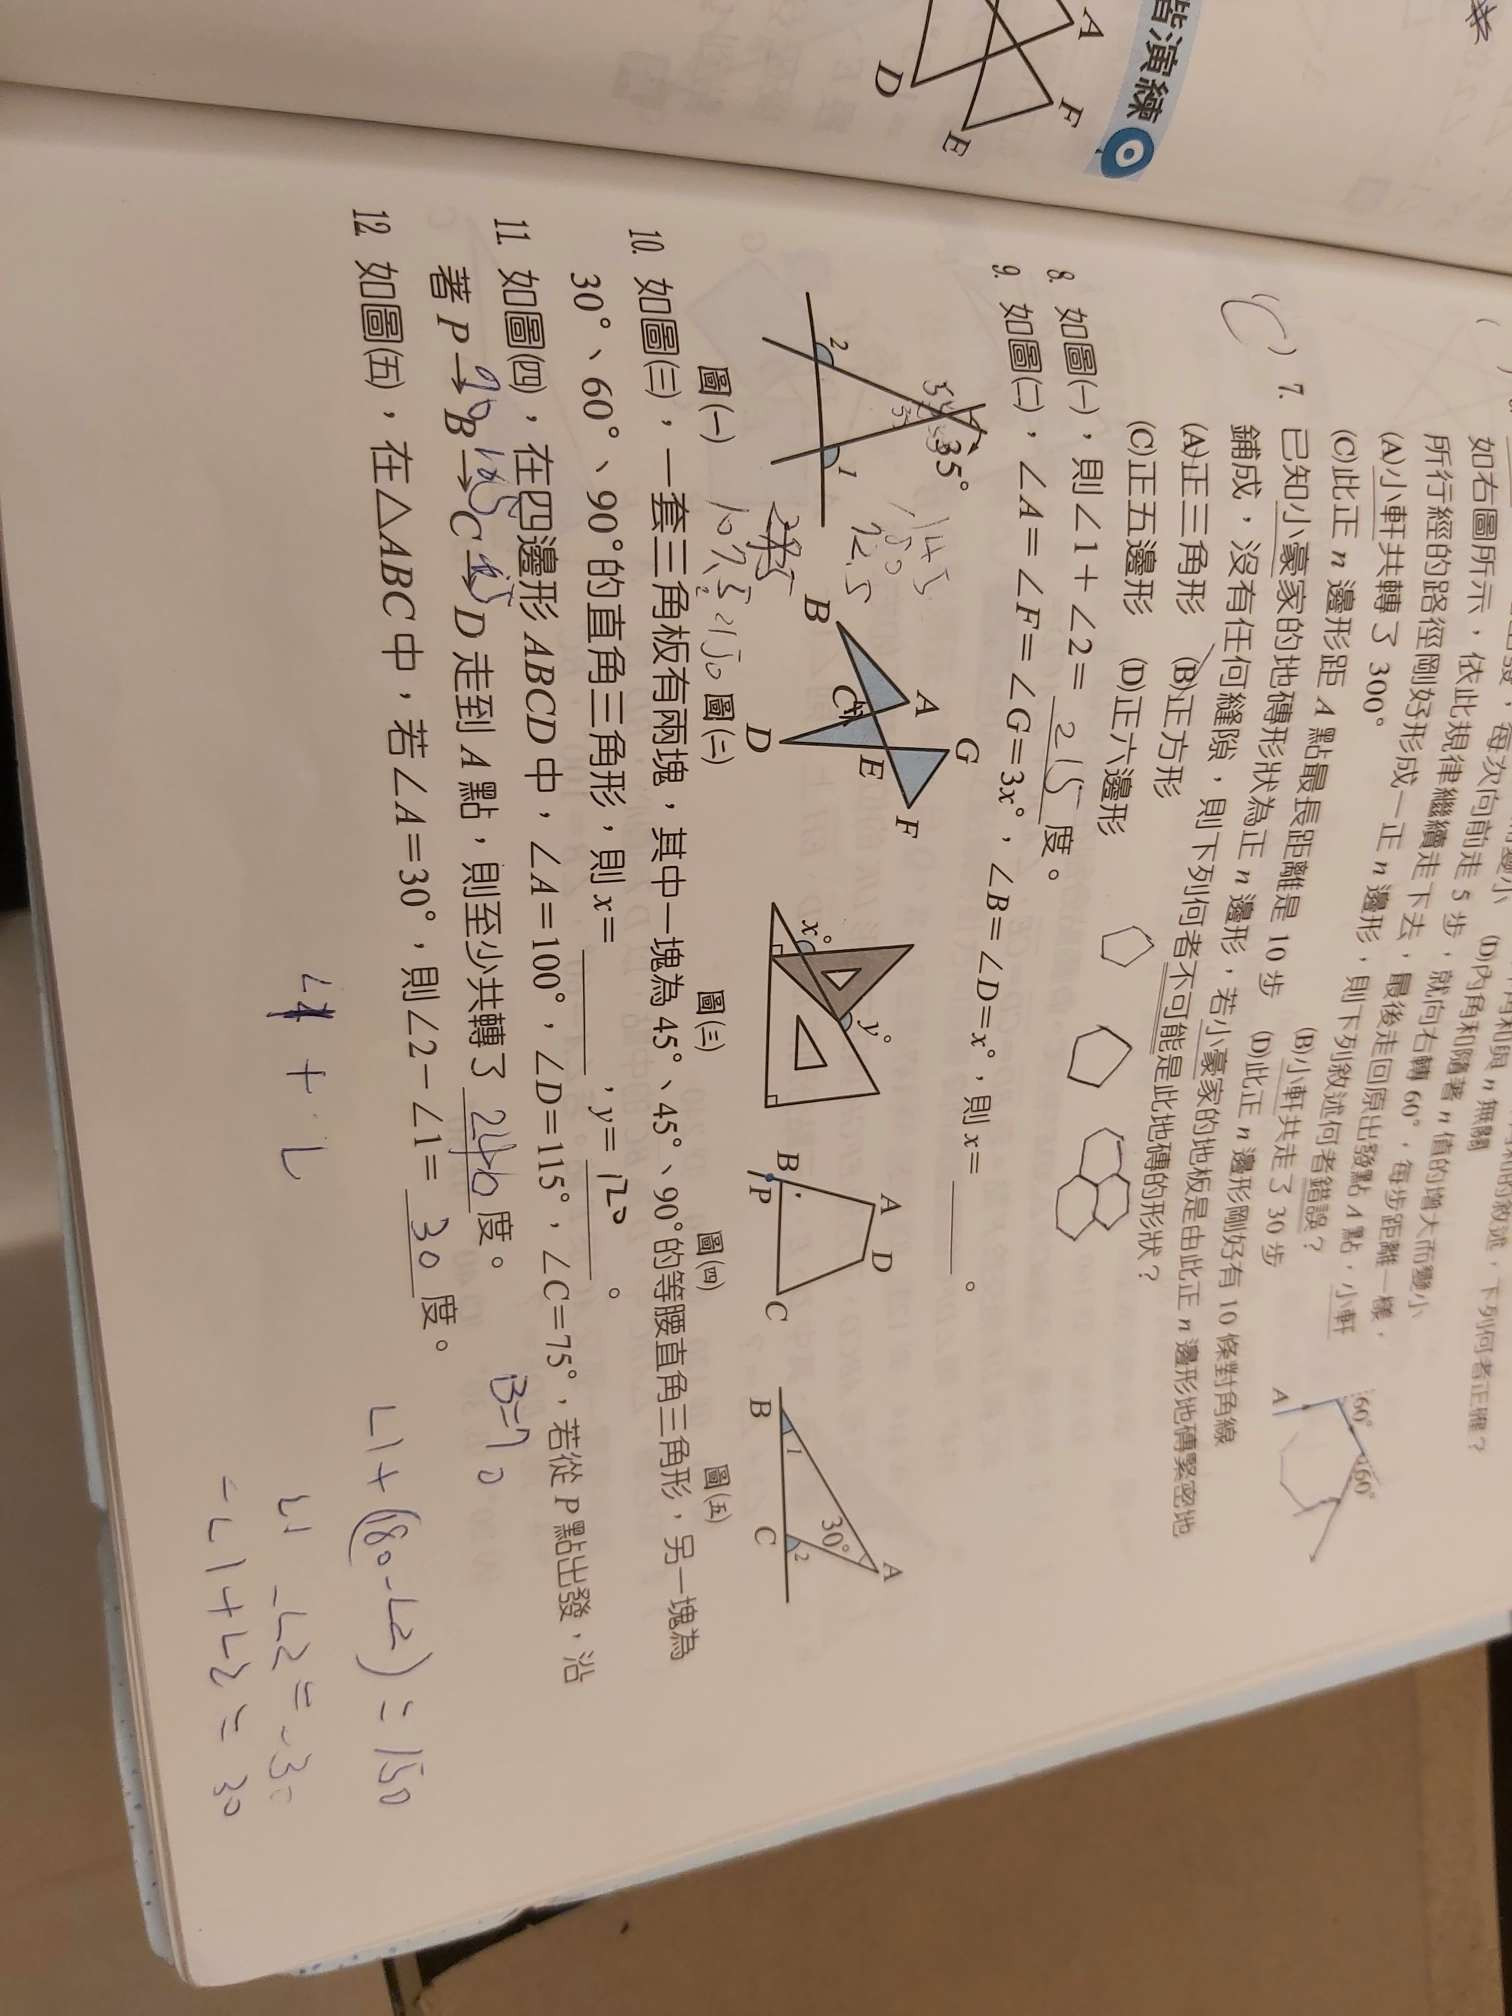 皆演練
A
F
E
D
(D)內角和隨著 n 值的增大而變小
如右圖所示,依此規律繼續走下去,最後走回原出發點 A 點,小軒
所行經的路徑剛好形成一正 n 邊形,則下列敘述何者錯誤?
(A)小軒共轉了 300°
(B)小軒共走了 30 步
(C)此正 n 邊形距 A 點最長距離是 10 步
60°
60°
A
(C) 7. 已知小豪家的地磚形狀為正 n 邊形,若小豪家的地板是由此正 n 邊形地磚緊密地
鋪成,沒有任何縫隙,則下列何者不可能是此地磚的形狀?
(A)正三角形 (B)正方形
(C)正五邊形 (D)正六邊形
8. 如圖(一),則∠1+∠2= 215 度。
9. 如圖(二),∠A=∠F=∠G=3x°,∠B=∠D=x°,則 x= 。
35°
2
1
145
圖(一)
A
B
C
D
E
F
G
圖(二)
x°
y°
圖(三)
A
B
C
D
P
圖(四)
A
B
C
30°
1
2
圖(五)
10. 如圖(三),一套三角板有兩塊,其中一塊為 45°、45°、90°的等腰直角三角形,另一塊為
30°、60°、90°的直角三角形,則 x= ,y= 120 。
11. 如圖(四),在四邊形 ABCD 中,∠A=100°,∠D=115°,∠C=75°,若從 P 點出發,沿
著 P→B→C→D 走到 A 點,則至少共轉了 240 度。
B=70
12. 如圖(五),在△ABC 中,若∠A=30°,則∠2-∠1= 30 度。
∠1+(180-∠2)=150
∠1-∠2=-30
-∠1+∠2=30